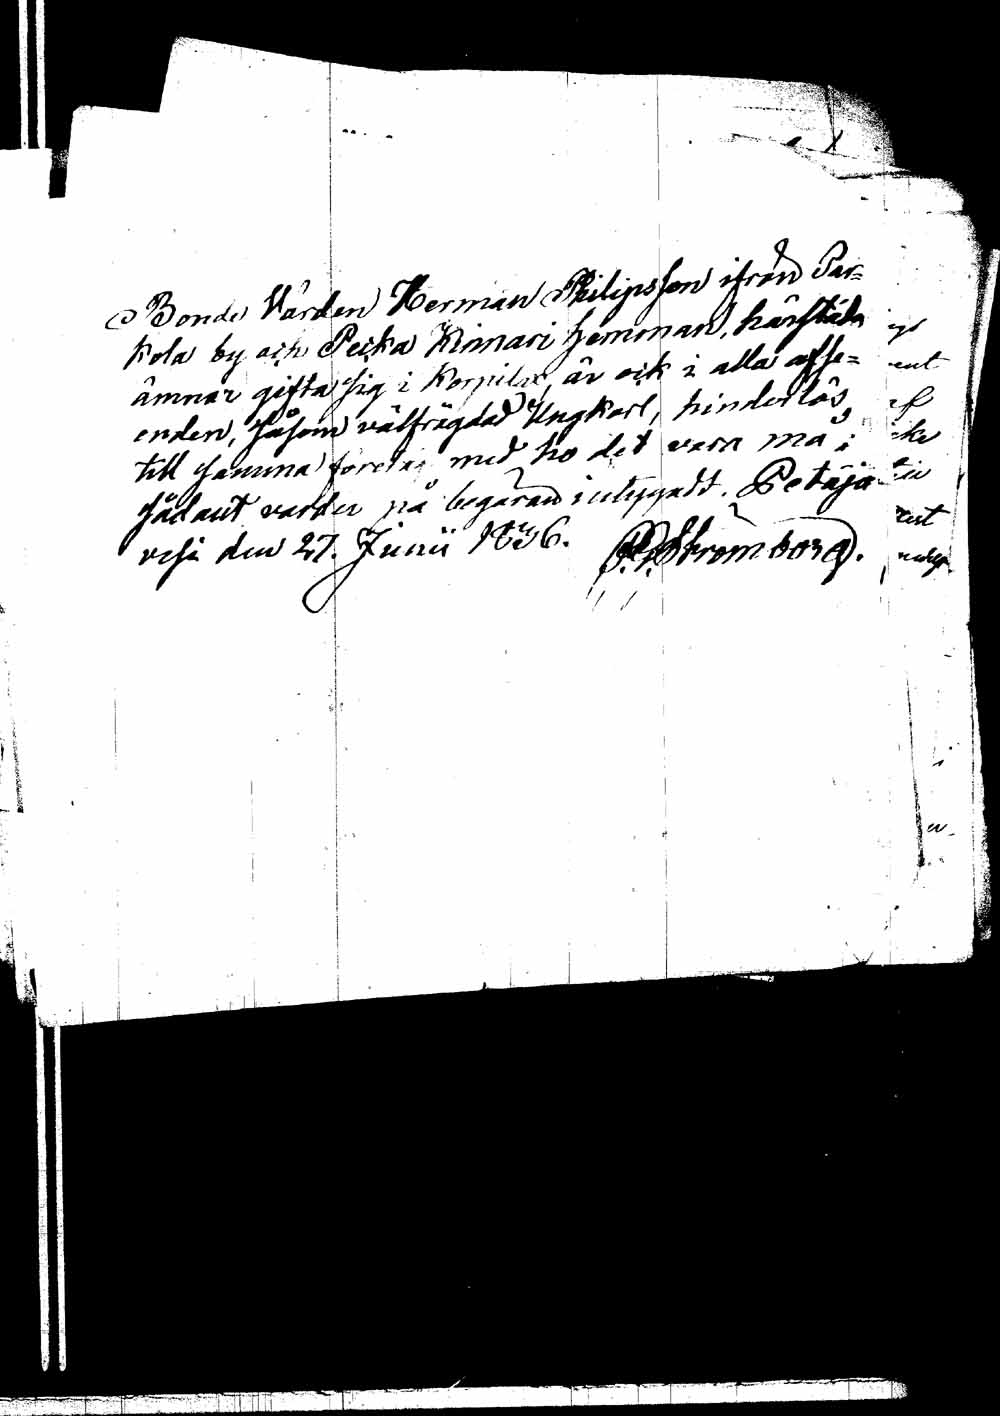 Bonde Vården Herman Philipsson ifrån Par=
kola by och Pecka Kinnari hemman, härstädes
ämnar gifta sig i Korpilax, är ock i alla afse=
enden, såsom välfrägdad Ungkarl, hinderlös
till samma företag med ho det vara må;
sådant varder på begäran intygadt. Petäjä
vesi den 27. Junii 1836. Strömborg.